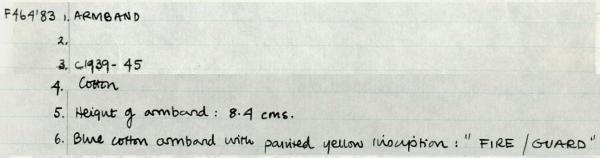 F464'83 1. ARMBAND
2.
3. c1939-45
4. Cotton
5. Height of armband: 8.4 cms.
6. Blue cotton armband with painted yellow inscription: "FIRE / GUARD"